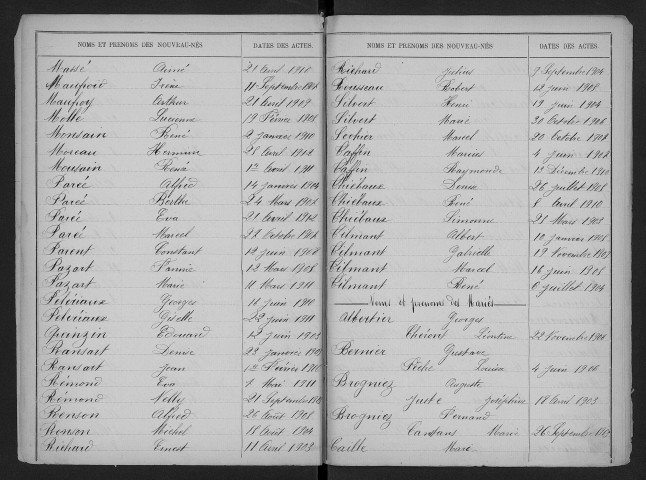 NOMS ET PRENOMS DES NOUVEAU-NÉS DATES DES ACTES.
Massé Aimé 21 Avril 1910
Maufroid Irène 11 Septembre
Maufroy Arthur 21 Avril 1909
Molle Lucienne 19 Février 1908
Monsain René 2 Janvier 1910
Moreau Herminie 28 Avril
Moussain René 1er Avril 1911
Paréé Alfred 14 Janvier 1904
Paréé Berthe 24 Mars
Paréé Eva 21 Avril
Paréé Marcel 22 Octobre
Parent Constant Juin
Pazart Fannie 12 Mars 1908
Pazart Marie 11 Mars 1911
Georges 11 Juin 1910
Giselle 22 Juin 1911
Quinzin Edouard 12 Juin 1903
Ransart Denise 23 Janvier
Ransart Jean 1er Février 1910
Rémond Eva 1 Mai 1911
Rémond Nelly 21 Septembre
Renson Alfred 26 Août 1908
Renson Michel 18 Août 1904
Richard Ernest 11 Avril 1903
NOMS ET PRENOMS DES NOUVEAU-NÉS DATES DES ACTES.
Richard Julius 9 Septembre 1904
Rousseau Robert 12 Juin 1908
Silvert Henri 19 Juin 1904
Silvert Marie 30 Octobre
Sochier Marcel 20 Octobre
Taffin Marius 4 Juin
Taffin Raymonde 1er Décembre 1910
Thiébaux Denise 26 Juillet 1908
Thiébaux René 8 Avril 1910
Thiébaux Simonne 28 Mars
Tilmant Albert 10 Janvier 1908
Tilmant Gabrielle 19 Novembre
Tilmant Marcel 16 Juin 1908
Tilmant René 6 Juillet 1904
Noms et prénoms des Mariés
Albertier Georges
Léontine 22 Novembre
Bernier Gustave
Fiche Louisa 4 Juin 1906
Brogniez Auguste
Juste Joséphine 18 Avril 1903
Brogniez Fernand
Marie 26 Septembre
Caille Marc